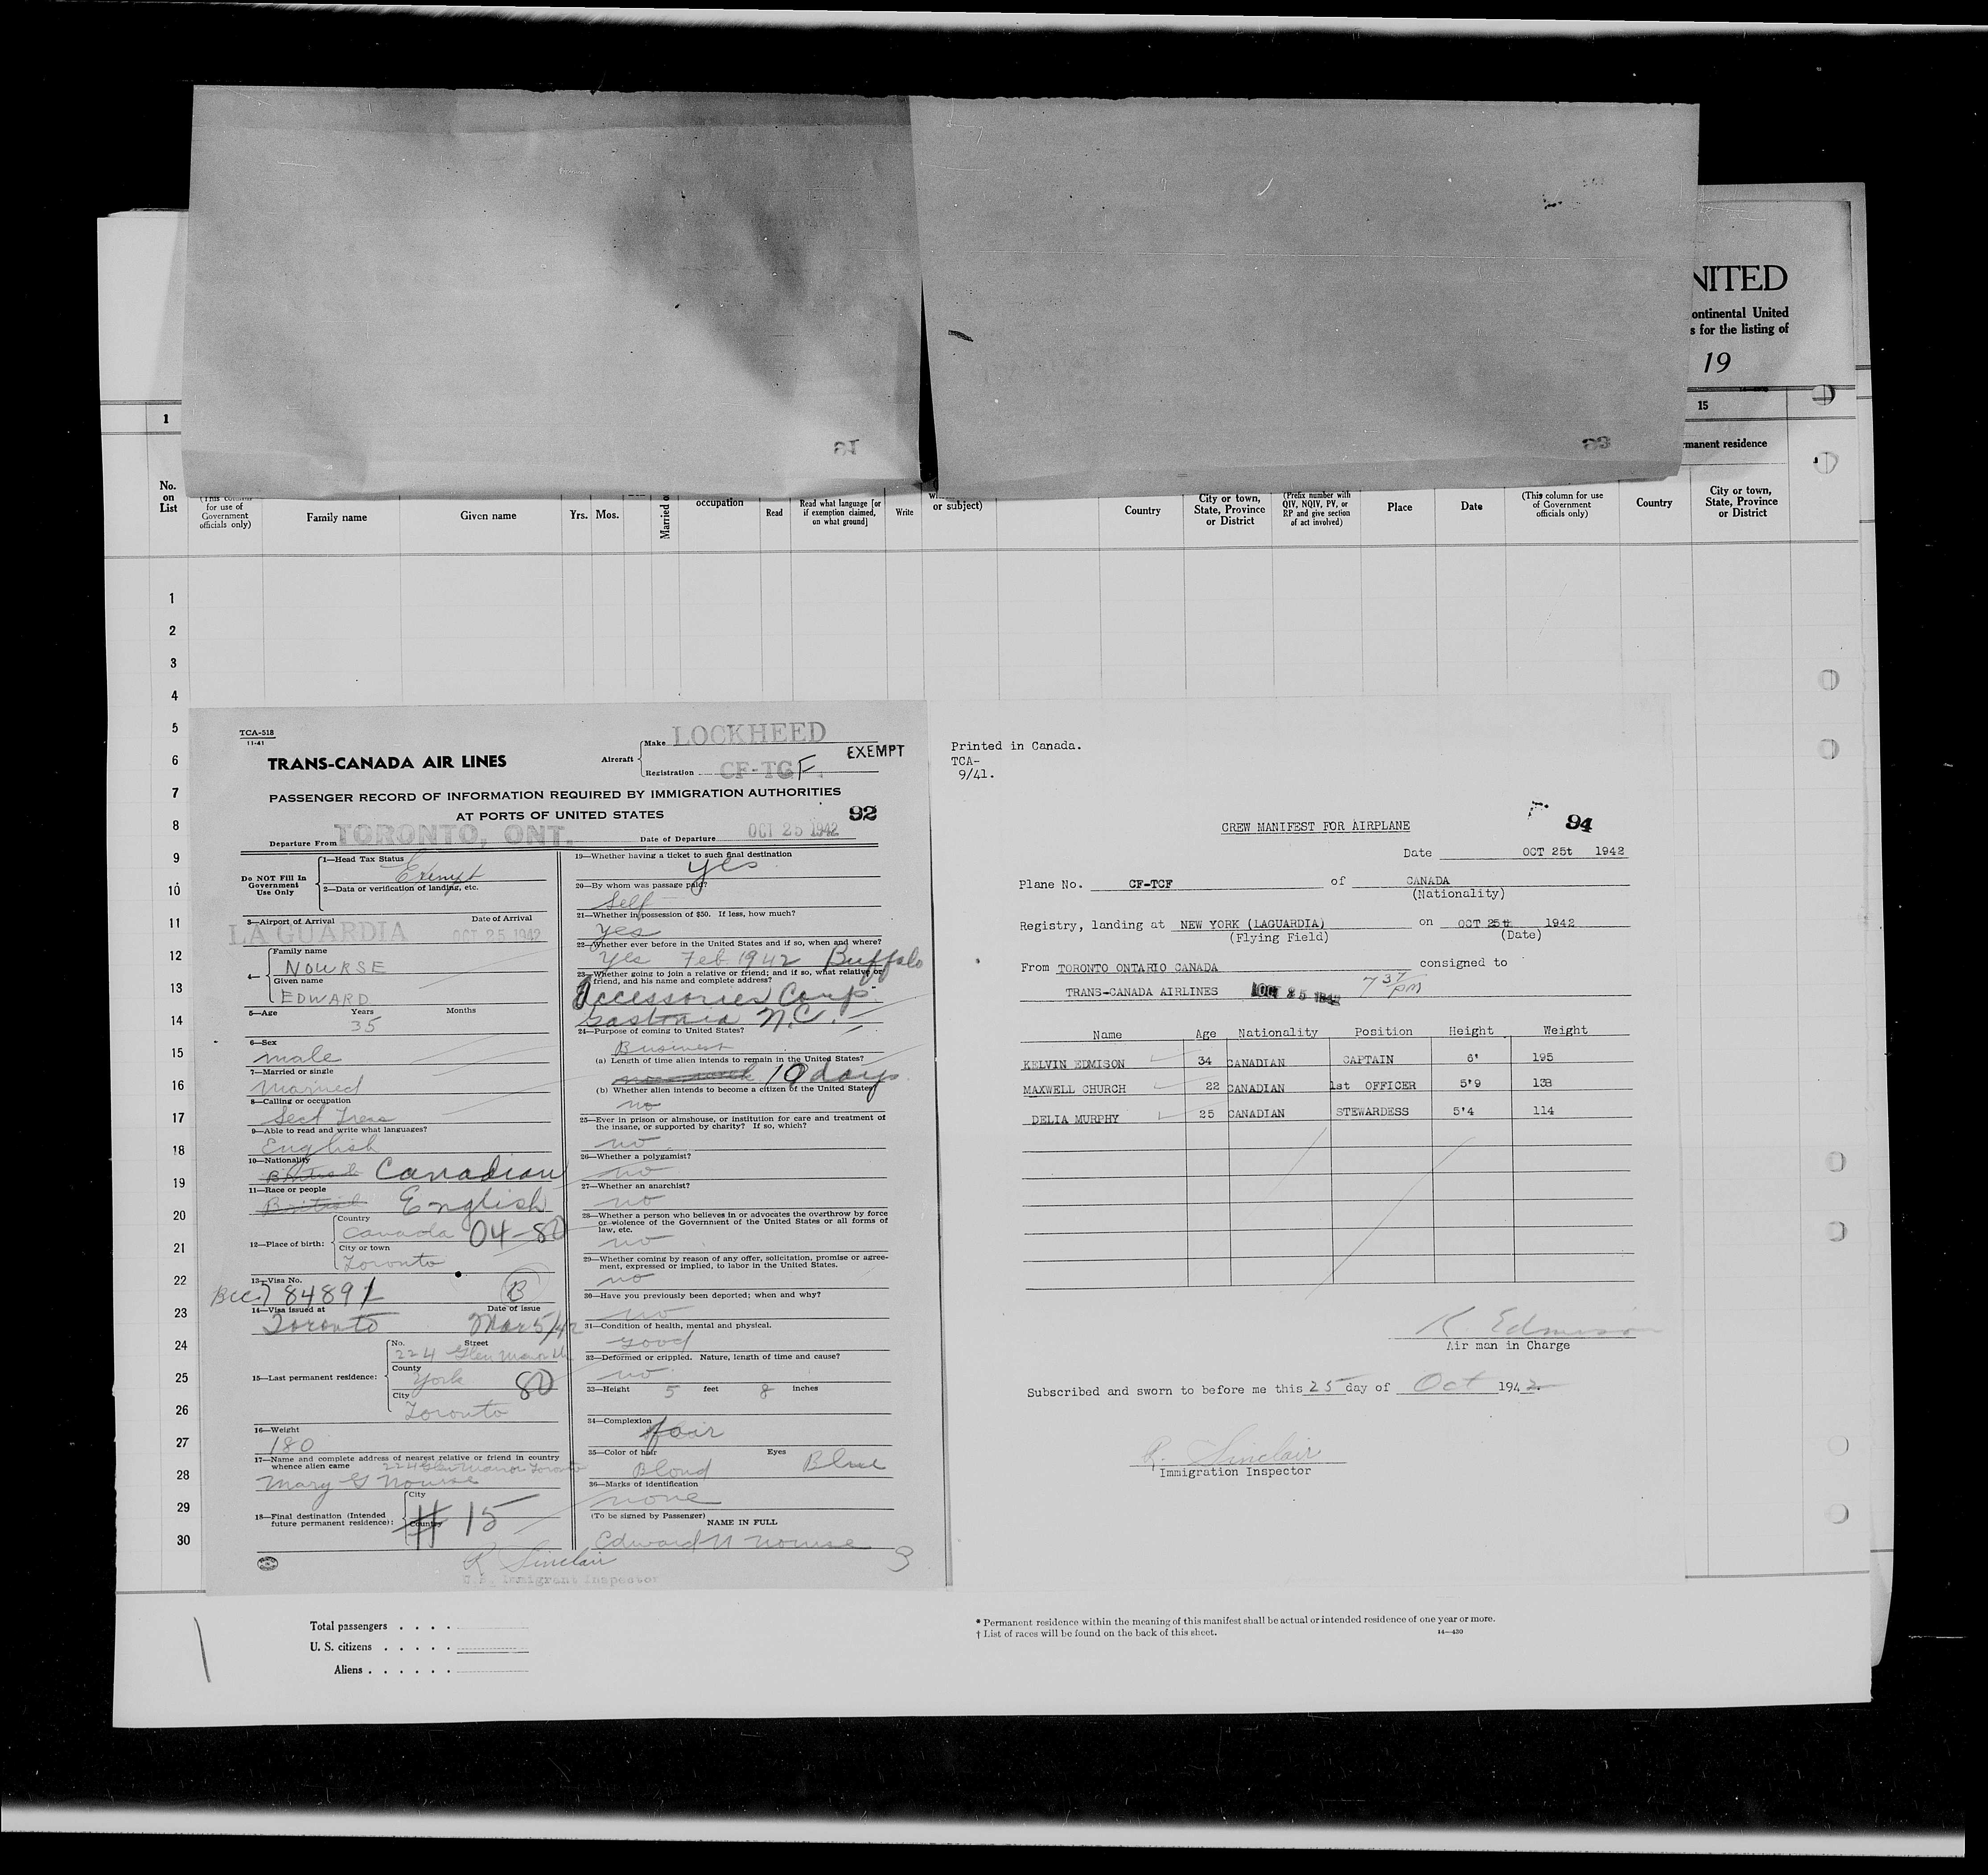 NITED
ontinental United
s for the listing of
19
1
15
manent residence
No.
on
List
(This column
for use of
Government
officials only)
Family name
Given name
Yrs. Mos.
Married o
occupation
Read
Read what language [or
if exemption claimed,
on what ground]
Write
or subject)
Country
City or town,
State, Province
or District
(Prefix number with
QIV, NQIV, PV, or
RP and give section
of act involved)
Place
Date
(This column for use
of Government
officials only)
Country
City or town,
State, Province
or District
1
2
3
4
5
6
7
8
9
10
11
12
13
14
15
16
17
18
19
20
21
22
23
24
25
26
27
28
29
30
TCA-518
11-41
TRANS-CANADA AIR LINES
Aircraft
Make LOCKHEED
Registration CF-TCF
EXEMPT
PASSENGER RECORD OF INFORMATION REQUIRED BY IMMIGRATION AUTHORITIES
AT PORTS OF UNITED STATES
92
Departure From TORONTO, ONT.
Date of Departure OCT 25 1942
Do NOT Fill In
Government
Use Only
1—Head Tax Status
Exempt
2—Data or verification of landing, etc.
3—Airport of Arrival Date of Arrival
LA GUARDIA OCT 25 1942
4—
Family name
NOURSE
Given name
EDWARD
5—Age Years Months
35
6—Sex
male
7—Married or single
Married
8—Calling or occupation
Sect Treas
9—Able to read and write what languages?
English
10—Nationality
British Canadian
11—Race or people
British English
12—Place of birth:
Country
Canada 04-80
City or town
Toronto
13—Visa No.
BCC 784891 B
14—Visa issued at Date of issue
Toronto Mar 5/42
15—Last permanent residence:
No. Street
224 Glen Manor
County
York 80
City
Toronto
16—Weight
180
17—Name and complete address of nearest relative or friend in country
whence alien came 224 Glen Manor Toronto
Mary G Nourse
18—Final destination (Intended
future permanent residence):
City
Country
# 15
R Sinclair
U.S. Immigrant Inspector
19—Whether having a ticket to such final destination
yes
20—By whom was passage paid?
Self
21—Whether in possession of $50. If less, how much?
yes
22—Whether ever before in the United States and if so, when and where?
Yes Feb 1942 Buffalo
23—Whether going to join a relative or friend; and if so, what relative or
friend, and his name and complete address?
Accessories Corp
Gastonia N.C.
24—Purpose of coming to United States?
Business
(a) Length of time alien intends to remain in the United States?
10 days
(b) Whether alien intends to become a citizen of the United States?
no
25—Ever in prison or almshouse, or institution for care and treatment of
the insane, or supported by charity? If so, which?
no
26—Whether a polygamist?
no
27—Whether an anarchist?
no
28—Whether a person who believes in or advocates the overthrow by force
or violence of the Government of the United States or all forms of
law, etc.
no
29—Whether coming by reason of any offer, solicitation, promise or agree-
ment, expressed or implied, to labor in the United States.
no
30—Have you previously been deported; when and why?
no
31—Condition of health, mental and physical.
good
32—Deformed or crippled. Nature, length of time and cause?
no
33—Height 5 feet 8 inches
34—Complexion
fair
35—Color of hair Eyes
Blond Blue
36—Marks of identification
none
(To be signed by Passenger)
NAME IN FULL
Edward N Nourse
3
Printed in Canada.
TCA-
9/41.
94
CREW MANIFEST FOR AIRPLANE
Date OCT 25t 1942
Plane No. CF-TCF of CANADA
(Nationality)
Registry, landing at NEW YORK (LAGUARDIA) on OCT 25t 1942
(Flying Field) (Date)
From TORONTO ONTARIO CANADA consigned to
TRANS-CANADA AIRLINES OCT 25 1942 7 37 pm
Name Age Nationality Position Height Weight
KELVIN EDMISON 34 CANADIAN CAPTAIN 6' 195
MAXWELL CHURCH 22 CANADIAN 1st OFFICER 5'9 138
DELIA MURPHY 25 CANADIAN STEWARDESS 5'4 114
K. Edmison
Air man in Charge
Subscribed and sworn to before me this 25 day of Oct 1942
R. Sinclair
Immigration Inspector
Total passengers . . . .
U. S. citizens . . . . .
Aliens . . . . . .
* Permanent residence within the meaning of this manifest shall be actual or intended residence of one year or more.
† List of races will be found on the back of this sheet.
14—430